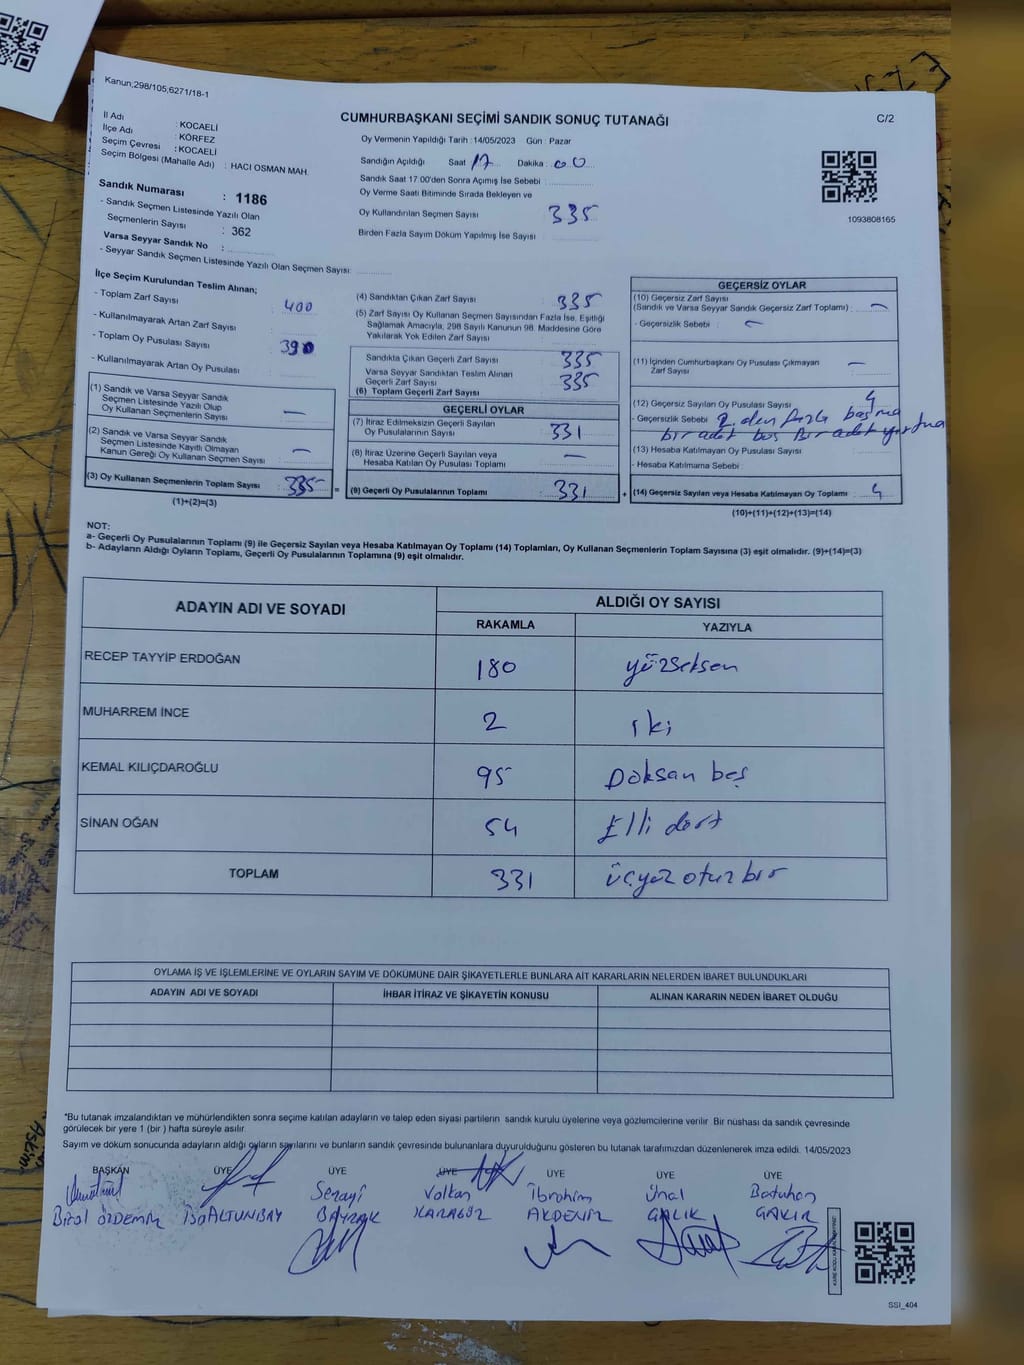 Kanun;298/105,6271/18-1
CUMHURBAŞKANI SEÇİMİ SANDIK SONUÇ TUTANAĞI
C/2
İl Adı : KOCAELİ
İlçe Adı : KÖRFEZ
Seçim Çevresi : KOCAELİ
Seçim Bölgesi (Mahalle Adı) : HACI OSMAN MAH.
Sandık Numarası : 1186
- Sandık Seçmen Listesinde Yazılı Olan
Seçmenlerin Sayısı : 362
Varsa Seyyar Sandık No :
- Seyyar Sandık Seçmen Listesinde Yazılı Olan Seçmen Sayısı:
Oy Vermenin Yapıldığı Tarih : 14/05/2023 Gün : Pazar
Sandığın Açıldığı Saat 17 Dakika : 00
Sandık Saat 17:00'den Sonra Açımış İse Sebebi
Oy Verme Saati Bitiminde Sırada Bekleyen ve
Oy Kullandırılan Seçmen Sayısı 335
Birden Fazla Sayım Döküm Yapılmış İse Sayısı
1093808165
İlçe Seçim Kurulundan Teslim Alınan;
- Toplam Zarf Sayısı 400
- Kullanılmayarak Artan Zarf Sayısı
- Toplam Oy Pusulası Sayısı 390
- Kullanılmayarak Artan Oy Pusulası
(1) Sandık ve Varsa Seyyar Sandık
Seçmen Listesinde Yazılı Olup
Oy Kullanan Seçmenlerin Sayısı —
(2) Sandık ve Varsa Seyyar Sandık
Seçmen Listesinde Kayıtlı Olmayan
Kanun Gereği Oy Kullanan Seçmen Sayısı —
(3) Oy Kullanan Seçmenlerin Toplam Sayısı 335
(1)+(2)=(3)
(4) Sandıktan Çıkan Zarf Sayısı 335
(5) Zarf Sayısı Oy Kullanan Seçmen Sayısından Fazla İse, Eşitliği
Sağlamak Amacıyla, 298 Sayılı Kanunun 98. Maddesine Göre
Yakılarak Yok Edilen Zarf Sayısı
Sandıkta Çıkan Geçerli Zarf Sayısı 335
Varsa Seyyar Sandıktan Teslim Alınan
Geçerli Zarf Sayısı 335
(6) Toplam Geçerli Zarf Sayısı
GEÇERLİ OYLAR
(7) İtiraz Edilmeksizin Geçerli Sayılan
Oy Pusulalarının Sayısı 331
(8) İtiraz Üzerine Geçerli Sayılan veya
Hesaba Katılan Oy Pusulası Toplamı —
= (9) Geçerli Oy Pusulalarının Toplamı 331 +
GEÇERSİZ OYLAR
(10) Geçersiz Zarf Sayısı
(Sandık ve Varsa Seyyar Sandık Geçersiz Zarf Toplamı) : —
- Geçersizlik Sebebi : —
(11) İçinden Cumhurbaşkanı Oy Pusulası Çıkmayan
Zarf Sayısı —
(12) Geçersiz Sayılan Oy Pusulası Sayısı 4
- Geçersizlik Sebebi 2.den fazla basma
bir adet boş Bir adet yırtma
(13) Hesaba Katılmayan Oy Pusulası Sayısı
- Hesaba Katılmama Sebebi
(14) Geçersiz Sayılan veya Hesaba Katılmayan Oy Toplamı : 4
(10)+(11)+(12)+(13)=(14)
NOT:
a- Geçerli Oy Pusulalarının Toplamı (9) ile Geçersiz Sayılan veya Hesaba Katılmayan Oy Toplamı (14) Toplamları, Oy Kullanan Seçmenlerin Toplam Sayısına (3) eşit olmalıdır. (9)+(14)=(3)
b- Adayların Aldığı Oyların Toplamı, Geçerli Oy Pusulalarının Toplamına (9) eşit olmalıdır.
ADAYIN ADI VE SOYADI
ALDIĞI OY SAYISI
RAKAMLA YAZIYLA
RECEP TAYYİP ERDOĞAN 180 yüzseksen
MUHARREM İNCE 2 iki
KEMAL KILIÇDAROĞLU 95 Doksan beş
SİNAN OĞAN 54 Elli dört
TOPLAM 331 üçyüz otuz bir
OYLAMA İŞ VE İŞLEMLERİNE VE OYLARIN SAYIM VE DÖKÜMÜNE DAİR ŞİKAYETLERLE BUNLARA AİT KARARLARIN NELERDEN İBARET BULUNDUKLARI
ADAYIN ADI VE SOYADI İHBAR İTİRAZ VE ŞİKAYETİN KONUSU ALINAN KARARIN NEDEN İBARET OLDUĞU
*Bu tutanak imzalandıktan ve mühürlendikten sonra seçime katılan adayların ve talep eden siyasi partilerin sandık kurulu üyelerine veya gözlemcilerine verilir. Bir nüshası da sandık çevresinde
görülecek bir yere 1 (bir ) hafta süreyle asılır.
Sayım ve döküm sonucunda adayların aldığı oyların sayılarını ve bunların sandık çevresinde bulunanlara duyurulduğunu gösteren bu tutanak tarafımızdan düzenlenerek imza edildi. 14/05/2023
BAŞKAN ÜYE ÜYE ÜYE ÜYE ÜYE ÜYE
Birol ÖZDEMİR İSA ALTUNBAY Serayi BAYRAK Volkan KARAGÖZ İbrahim AKDENİZ Ünal ÇALIK Batuhan ÇAKIR
SSI_404